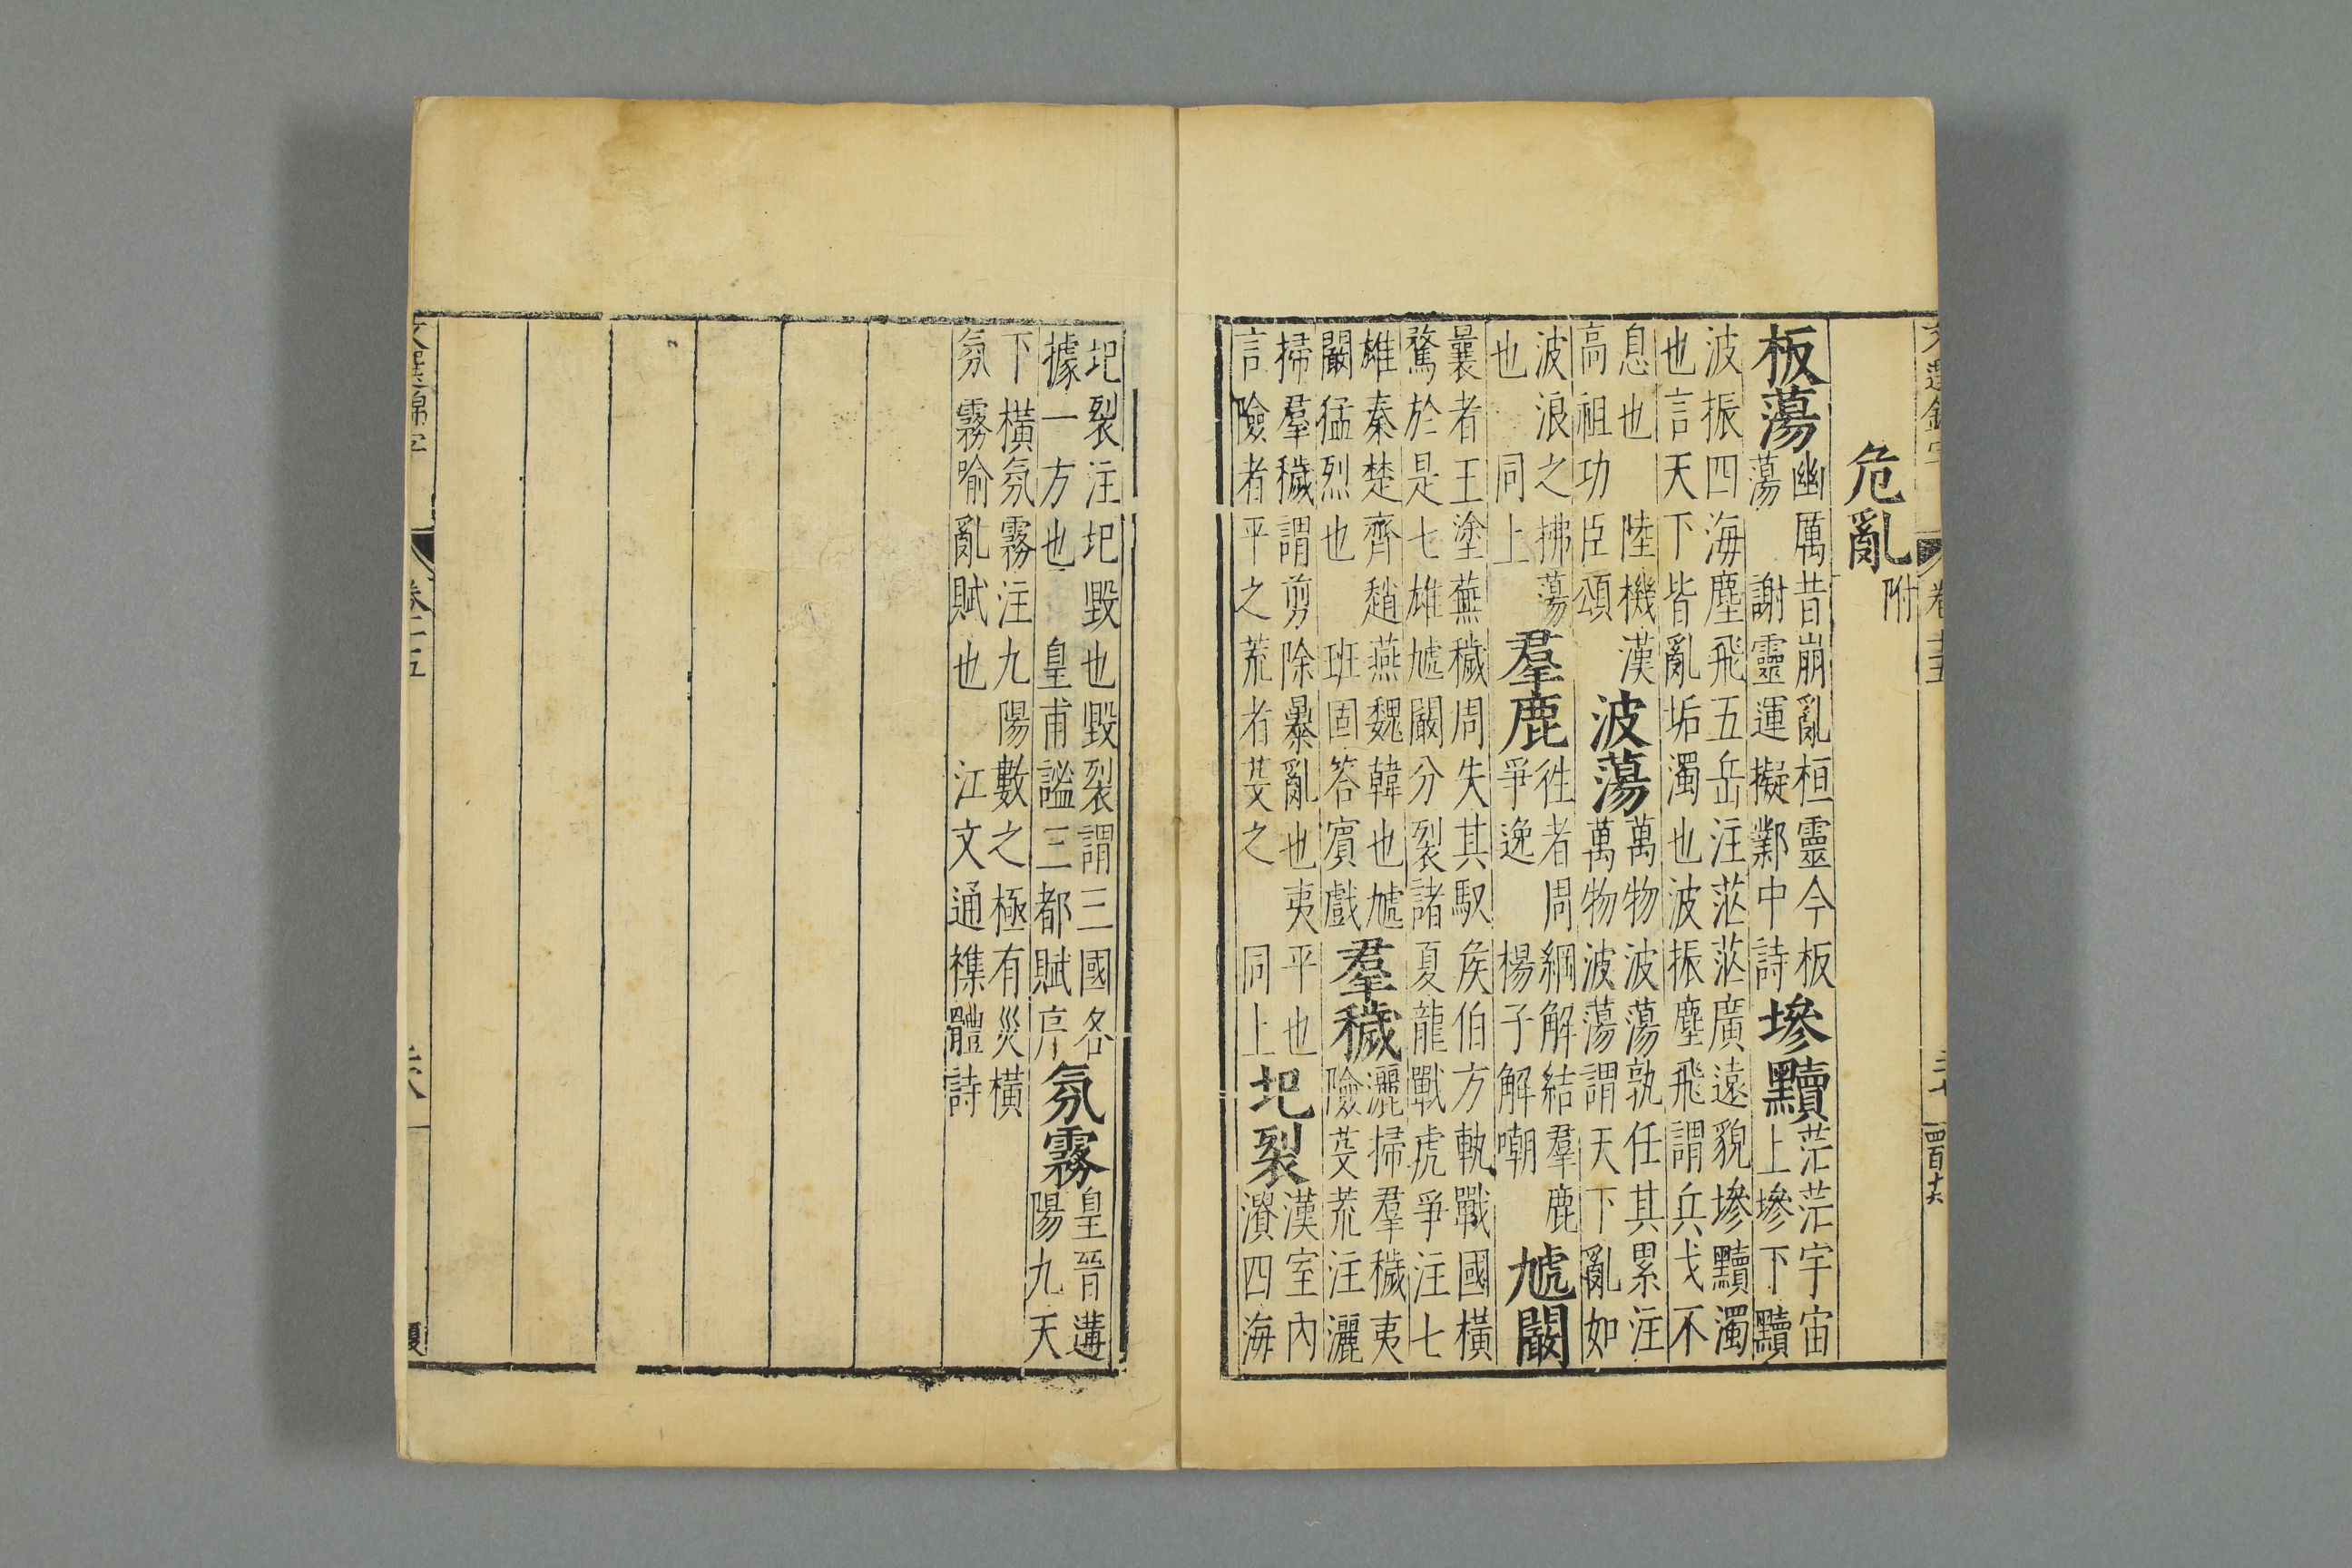 卷十五
四百十六
危亂附
板蕩
幽厲昔崩亂桓靈今板
蕩　謝靈運擬鄴中詩
墋黷
茫茫宇宙
上墋下黷
波振四海塵飛五岳注茫茫廣遠貌墋黷濁
也言天下皆亂垢濁也波振塵飛謂兵戈不
息也　陸機漢
高祖功臣頌
波蕩
萬物波蕩孰任其累注
萬物波蕩謂天下亂如
波浪之拂蕩
也　同上
羣鹿
徃者周綱解結羣鹿
爭逸　楊子解嘲
虓闞
曩者王塗蕪穢周失其馭侯伯方軌戰國橫
騖於是七雄虓闞分裂諸夏龍戰虎爭注七
雄秦楚齊趙燕魏韓也虓
闞猛烈也　班固答賓戲
羣穢
灑掃羣穢夷
險芟荒注灑
掃羣穢謂剪除暴亂也夷平也
言險者平之荒者芟之　同上
圯裂
漢室內
潰四海
圯裂注圯毀也毀裂謂三國各
據一方也　皇甫謐三都賦序
氛霧
皇晉遘
陽九天
下橫氛霧注九陽數之極有災橫
氛霧喻亂賦也　江文通襍體詩
文選錦字
卷十五